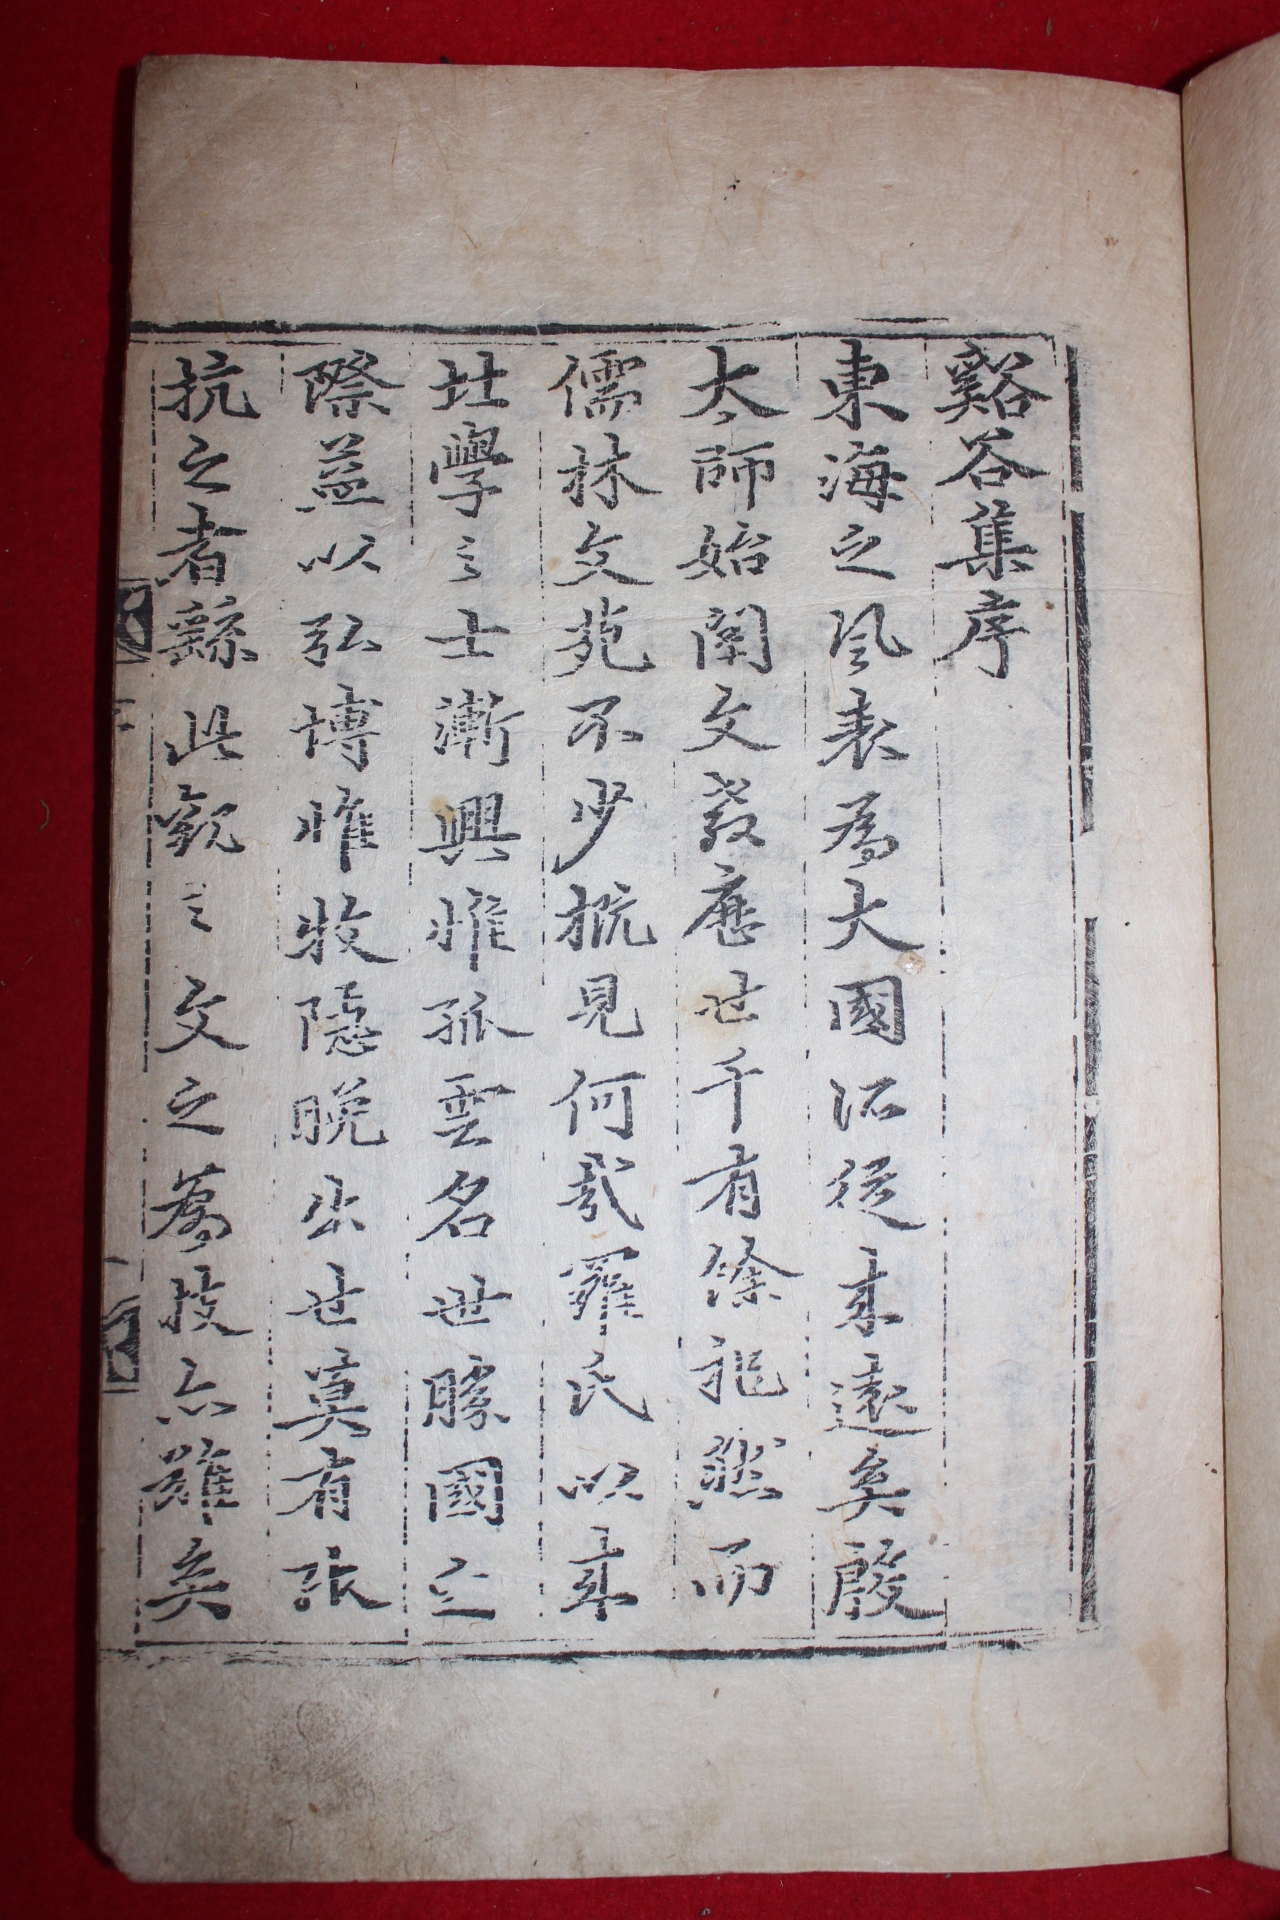 谿谷集序
東海之風表為大國所從來遠矣殷
太師始開文教歷世千有餘祀然而
儒林文苑不少概見何哉羅氏以來
北學之士漸興惟孤雲名世勝國之
際益以弘博惟牧隱晚出世莫有張
抗之者繇此觀之文之為技亦難矣